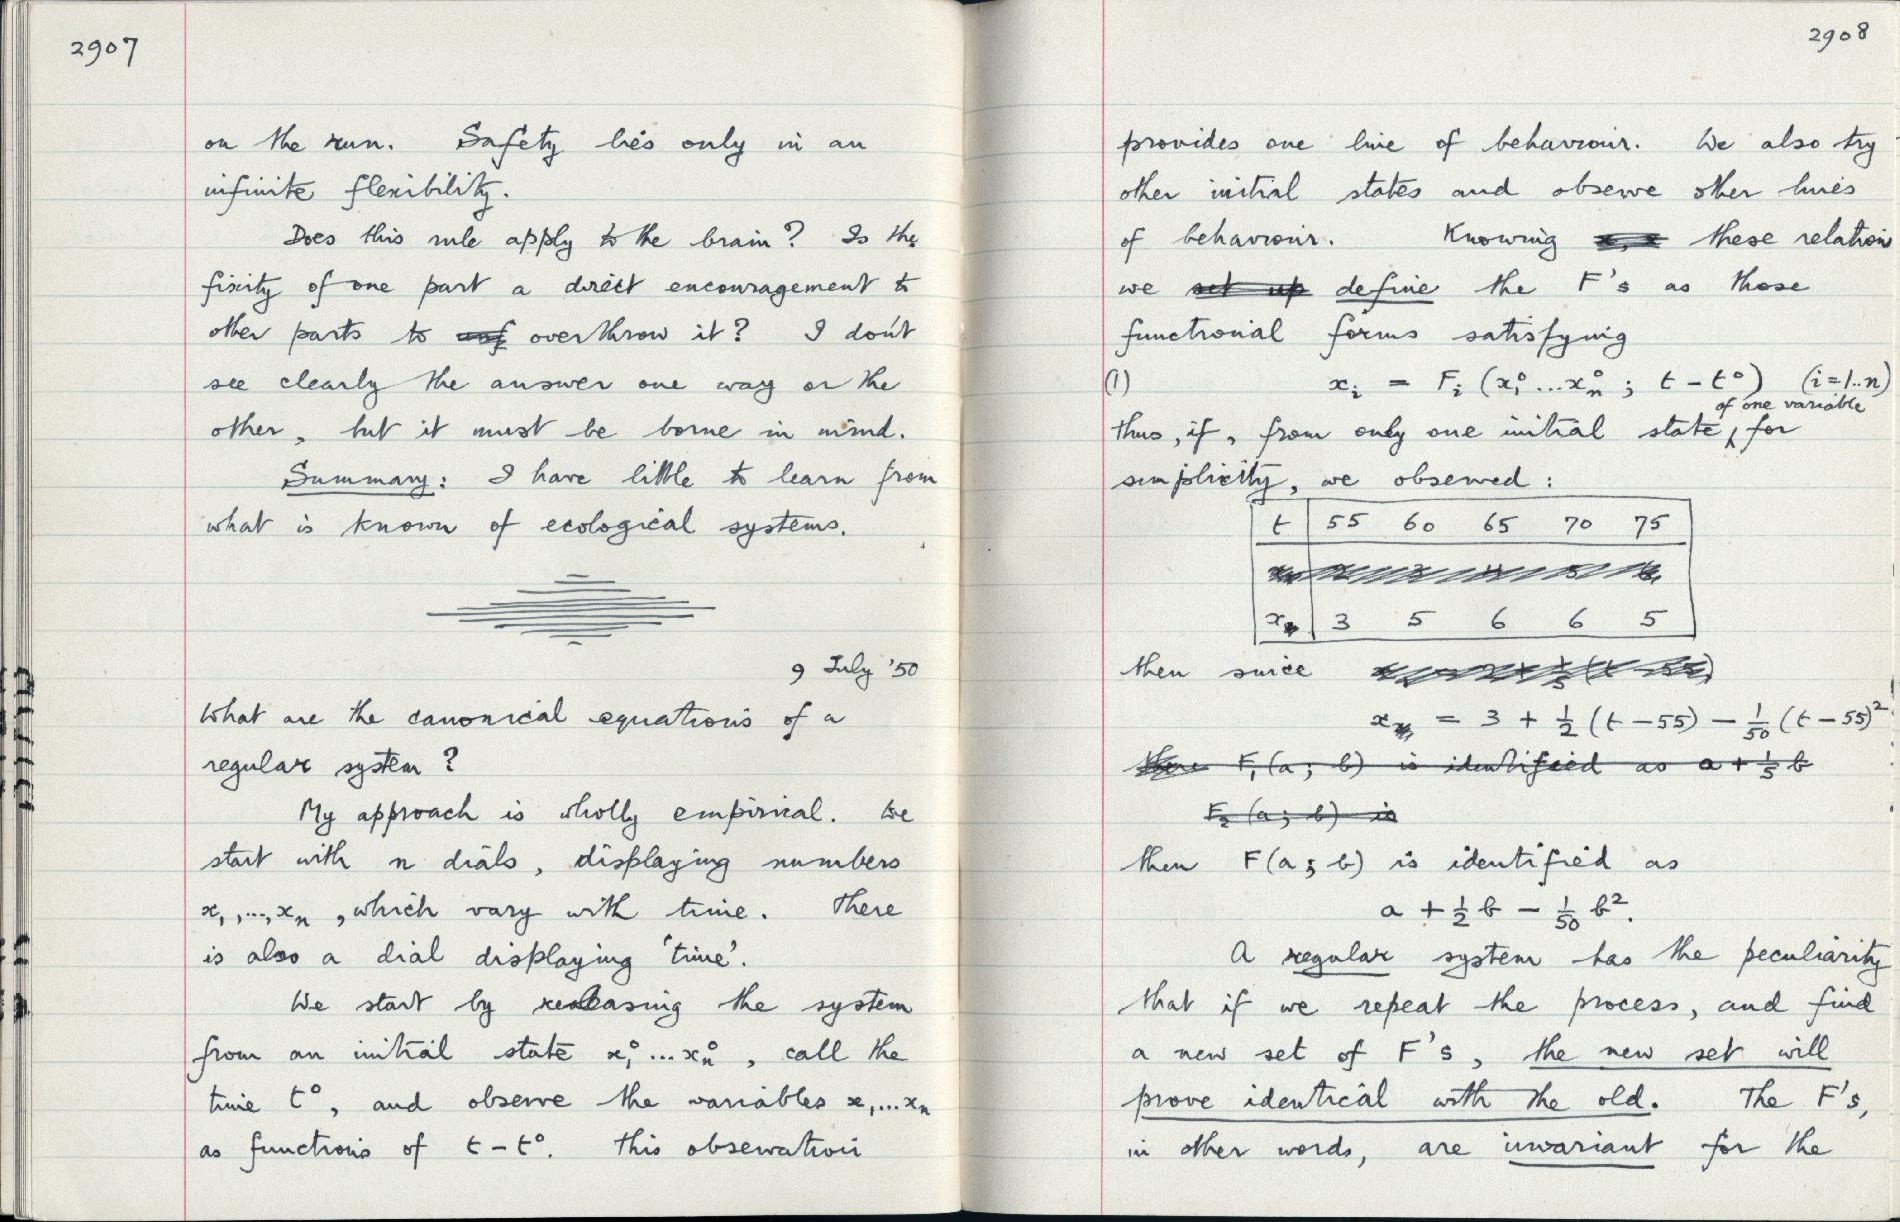 2907
on the run. Safety lies only in an
infinite flexibility.
Does this rule apply to the brain? Is the
fixity of one part a direct encouragement to
other parts to overthrow it? I don't
see clearly the answer one way or the
other, but it must be borne in mind.
Summary: I have little to learn from
what is known of ecological systems.
9 July '50
What are the canonical equations of a
regular system?
My approach is wholly empirical. We
start with n dials, displaying numbers
x₁,...,xₙ, which vary with time. There
is also a dial displaying 'time'.
We start by releasing the system
from an initial state x₁⁰...xₙ⁰, call the
time t⁰, and observe the variables x₁...xₙ
as functions of t - t⁰. This observation
2908
provides one line of behaviour. We also try
other initial states and observe other lines
of behaviour. Knowing these relations
we set up define the F's as those
functional forms satisfying
(1) xᵢ = Fᵢ (x₁⁰...xₙ⁰ ; t - t⁰) (i=1..n)
of one variable
Thus, if, from only one initial state, for
simplicity, we observed:
t 55 60 65 70 75
x 3 5 6 6 5
then since
x = 3 + ½ (t - 55) - 1/50 (t - 55)²
there F₁(a ; b) is identified as a + 1/5 b
F₂ (a ; b) is
then F(a ; b) is identified as
a + ½ b - 1/50 b².
A regular system has the peculiarity
that if we repeat the process, and find
a new set of F's, the new set will
prove identical with the old. The F's,
in other words, are invariant for the